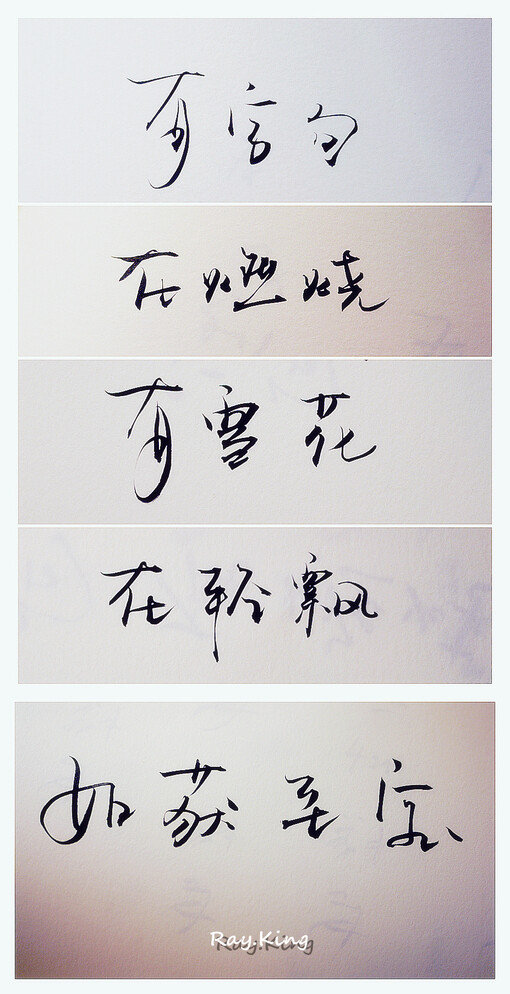 有字句
在燃烧
有雪花
在轻飘
如获至宝
Ray.King